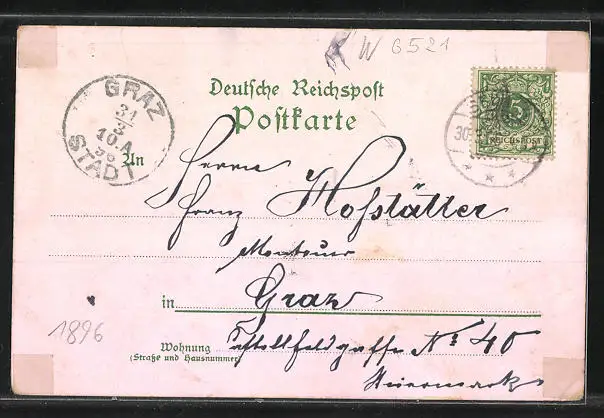 W 6521
Deutsche Reichspost
Postkarte
GRAZ
31/3
10.A
96
STADT
30
5
REICHSPOST
An Herrn
Franz Hofstätter
Monteur
in Graz
1896
Wohnung
(Straße und Hausnummer)
No 40
Steiermark